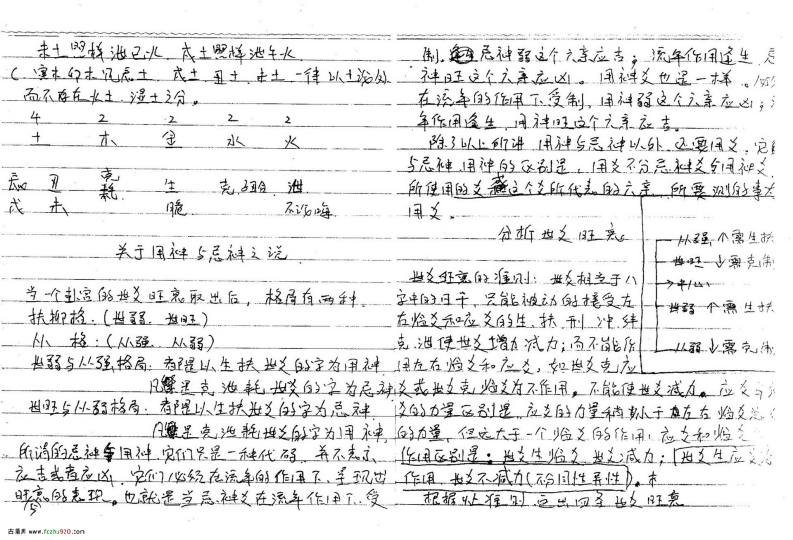 未土照样泄巳火 戌土照样泄午火
C 寅木卯木见辰土 戌土丑土 未土一律以土论处
而不存在火土 湿土之分。
4 2 2 2 2
土 木 金 水 火
辰 丑 克耗 生 克 泄
戌 未 脆 不论晦
关于用神与忌神之说
当一个卦宫的世爻旺衰取出后，格局有两种
扶抑格：(世弱. 世旺)
从 格：(从强. 从弱)
世弱与从强格局：都是以生扶世爻的字为用神
凡是克泄耗世爻的字为忌神
世旺与从弱格局：都是以生扶世爻的字为忌神
凡是克泄耗世爻的字为用神,
所谓的忌神与用神，它们只是一种代码，并不表示
应吉或者应凶，它们必须在流年的作用下，呈现出
旺衰的表现。也就是当忌神爻在流年作用下，受
制，忌神弱这个六亲应吉；流年作用逢生 忌
神旺这个六亲应凶。用神爻也是一样。
在流年的作用下受制，用神弱这个六亲应凶；
年作用逢生，用神旺这个六亲应吉。
除了以上所讲，用神与忌神以外，还要用爻，它
与忌神 用神的区别是，用爻不分忌神爻与用神爻.
所使用的爻 这个爻所代表的六亲 所要测的事
用爻。
分析世爻旺衰。
从强 个需生扶
世旺 ↓需克制
中心
世弱 个需生扶
从弱 ↓需克制
世爻旺衰的准则：世爻相当于八
字中的日干，只能被动的接受左
右临爻和应爻的生. 扶 刑 冲 绊
克 泄使世爻增力减力；而不能作
用左右临爻和应爻，如世爻克应
爻或世爻克临爻为不作用，不能使世爻减力。应爻与
爻的力量区别是，应爻的力量稍小于左右临爻
的力量，但远大于一个临爻的作用；应爻和临爻
作用区别是：世爻生临爻 世爻减力；世爻生应爻
作用. 世爻不减力(不同性异性)。
根据此准则 定出四季世爻旺衰
古易库 www.fczhu920.com